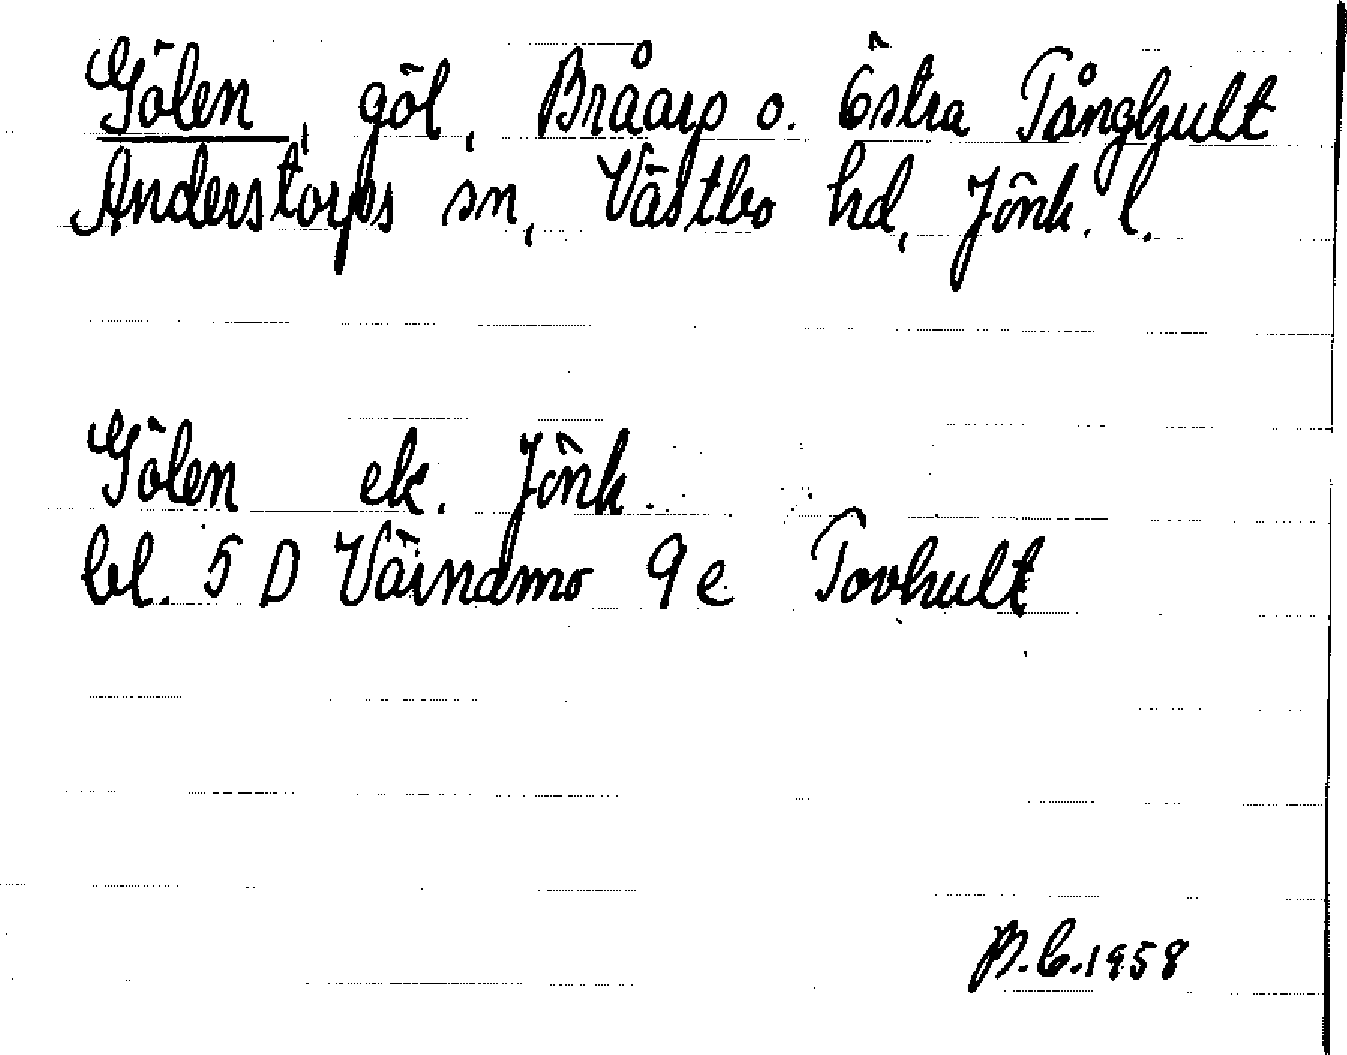 Gölen, göl, Bråarp o. Östra Tånghult
Anderstorps sn, Västbo hd, Jönk. l.
Gölen ek. Jönk.
bl. 5 D Värnamo 9 e Tovhult
B.E.1958